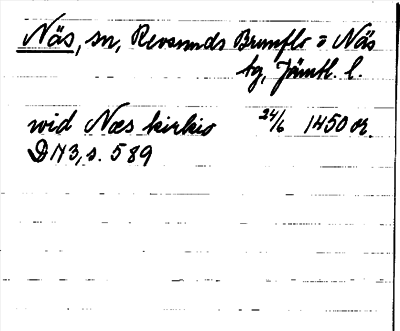 Näs, sn, Revsunds Brunflo o Näs
tg, Jämtl. l.
wid Næs kirkio 24/6 1450 or.
DN 3, s. 589